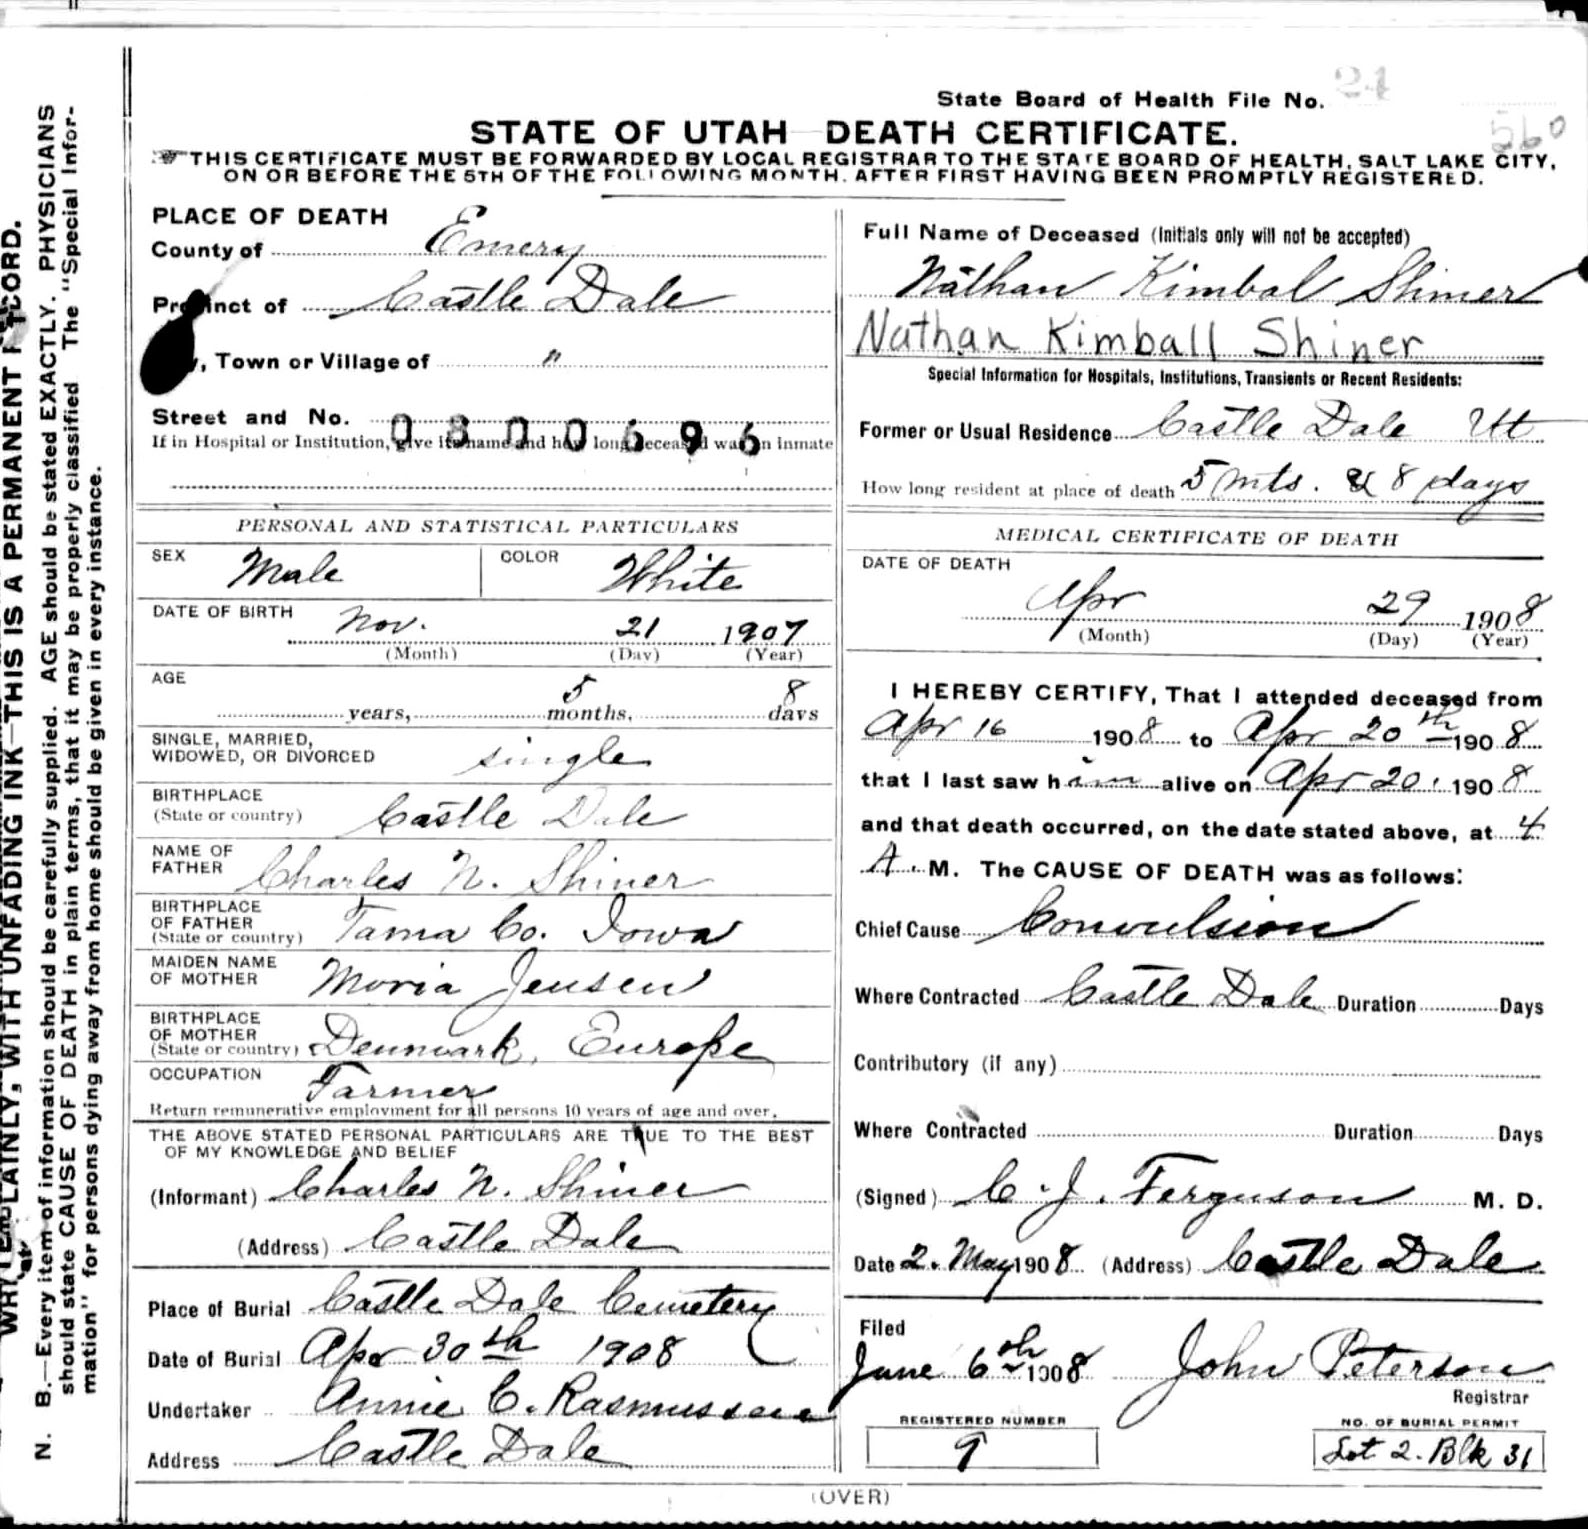 State Board of Health File No. 24
560
STATE OF UTAH DEATH CERTIFICATE.
THIS CERTIFICATE MUST BE FORWARDED BY LOCAL REGISTRAR TO THE STATE BOARD OF HEALTH, SALT LAKE CITY,
ON OR BEFORE THE 5TH OF THE FOLLOWING MONTH. AFTER FIRST HAVING BEEN PROMPTLY REGISTERED.
WRITE PLAINLY, WITH UNFADING INK—THIS IS A PERMANENT RECORD.
N. B.—Every item of information should be carefully supplied. AGE should be stated EXACTLY. PHYSICIANS
should state CAUSE OF DEATH in plain terms, that it may be properly classified The "Special Infor-
mation" for persons dying away from home should be given in every instance.
PLACE OF DEATH
County of Emery
Precinct of Castle Dale
, Town or Village of "
Street and No.
If in Hospital or Institution, give its name and how long deceased was an inmate
PERSONAL AND STATISTICAL PARTICULARS
SEX Male COLOR White
DATE OF BIRTH Nov. 21 1907
(Month) (Day) (Year)
AGE
years, 5 months, 8 days
SINGLE, MARRIED,
WIDOWED, OR DIVORCED single
BIRTHPLACE
(State or country) Castle Dale
NAME OF
FATHER Charles N. Shiner
BIRTHPLACE
OF FATHER
(State or country) Tama Co. Iowa
MAIDEN NAME
OF MOTHER Moria Jensen
BIRTHPLACE
OF MOTHER
(State or country) Denmark, Europe
OCCUPATION Farmer
Return remunerative employment for all persons 10 years of age and over.
THE ABOVE STATED PERSONAL PARTICULARS ARE TRUE TO THE BEST
OF MY KNOWLEDGE AND BELIEF
(Informant) Charles N. Shiner
(Address) Castle Dale
Place of Burial Castle Dale Cemetery
Date of Burial Apr 30th 1908
Undertaker Annie C. Rasmussen
Address Castle Dale
Full Name of Deceased (Initials only will not be accepted)
Nathan Kimbal Shiner
Nathan Kimball Shiner
Special Information for Hospitals, Institutions, Transients or Recent Residents:
Former or Usual Residence Castle Dale Ut
How long resident at place of death 5 mts. & 8 days
MEDICAL CERTIFICATE OF DEATH
DATE OF DEATH
Apr 29 1908
(Month) (Day) (Year)
I HEREBY CERTIFY, That I attended deceased from
Apr 16 1908 to Apr 20th 1908
that I last saw him alive on Apr 20, 1908
and that death occurred, on the date stated above, at 4
A. M. The CAUSE OF DEATH was as follows:
Chief Cause Convulsion
Where Contracted Castle Dale Duration Days
Contributory (if any)
Where Contracted Duration Days
(Signed) C. J. Ferguson M. D.
Date 2. May 1908 (Address) Castle Dale
Filed
June 6th 1908 John Peterson
Registrar
REGISTERED NUMBER
9
NO. OF BURIAL PERMIT
Lot 2. Blk 31
(OVER)